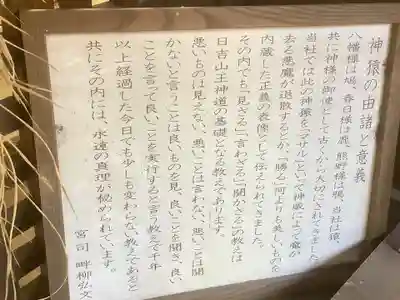 神猿の由諸と意義
八幡様は鳩、春日様は鹿、熊野様は鴉、当社は猿、
共に神様の御使として古くから大切にされてきました。
当社では此の神猿を「マサル」といって神威によって魔が
去る悪魔が退散するとか、「勝る」何よりも美しいものを
内蔵した正義の表徴として伝えられてきました。
その内でも「見ざる」「言わざる」「聞かざる」の教えは
日吉山王神道の基礎となる教えであります。
悪いものは見えない、悪いことは言わない、悪いことは聞
かないと言うことは良いものを見、良いことを聞き、良い
ことを言って良いことを実行すると言う教えで千年
以上経過した今日でも少しも変わらない教えであると
共にその内には、永遠の真理が秘められています。
宮司 畔柳弘文